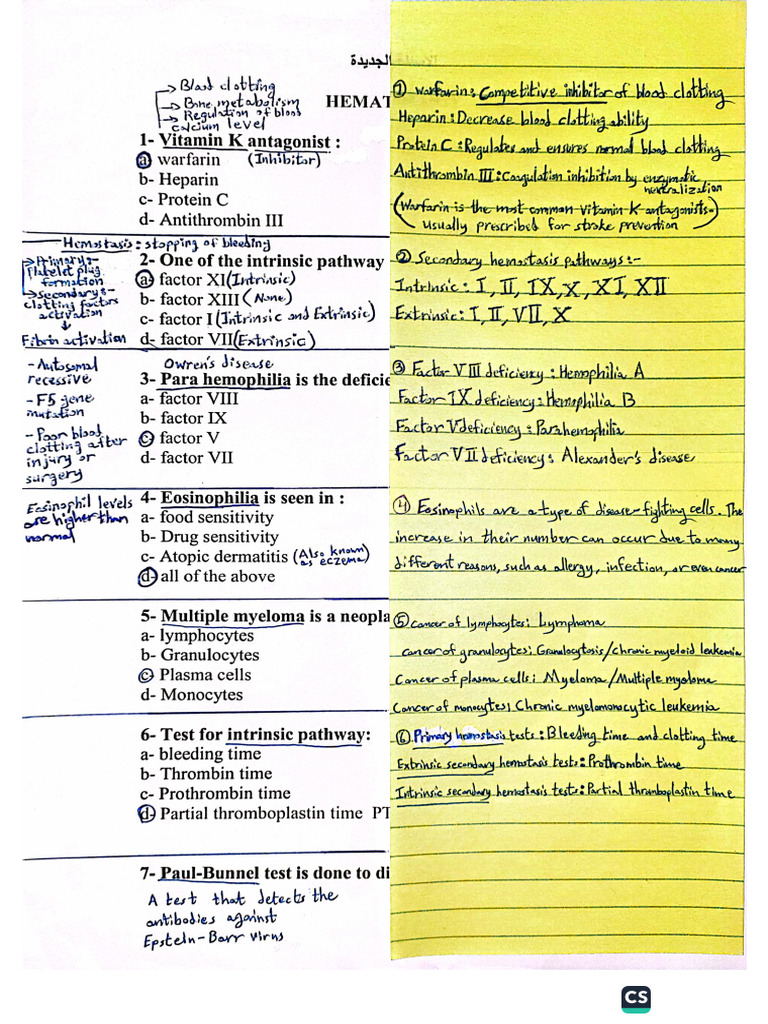 الجديدة
Blood clotting
Bone metabolism
Regulation of blood
calcium level
HEMAT
1- Vitamin K antagonist :
a- warfarin (Inhibitor)
b- Heparin
c- Protein C
d- Antithrombin III
Hemostasis: stopping of bleeding
Primary:-
Platelet plug
formation
Secondary:-
clotting factors
activation
Fibrin activation
2- One of the intrinsic pathway
a- factor XI (Intrinsic)
b- factor XIII (None)
c- factor I (Intrinsic and Extrinsic)
d- factor VII (Extrinsic)
- Autosomal
recessive
- F5 gene
mutation
- Poor blood
clotting after
injury or
surgery
Owren's disease
3- Para hemophilia is the deficie
a- factor VIII
b- factor IX
c- factor V
d- factor VII
Eosinophil levels
are higher than
normal
4- Eosinophilia is seen in :
a- food sensitivity
b- Drug sensitivity
c- Atopic dermatitis (Also known
as eczema)
d- all of the above
5- Multiple myeloma is a neopla
a- lymphocytes
b- Granulocytes
c- Plasma cells
d- Monocytes
6- Test for intrinsic pathway:
a- bleeding time
b- Thrombin time
c- Prothrombin time
d- Partial thromboplastin time PT
7- Paul-Bunnel test is done to di
A test that detects the
antibodies against
Epstein-Barr virus
① warfarin: Competitive inhibitor of blood clotting
Heparin: Decrease blood clotting ability
Protein C: Regulates and ensures normal blood clotting
Antithrombin III: Coagulation inhibition by enzymatic
neutralization
(Warfarin is the most common vitamin K antagonists-
usually prescribed for stroke prevention)
② Secondary hemostasis pathways:-
Intrinsic: I, II, IX, X, XI, XII
Extrinsic: I, II, VII, X
③ Factor VIII deficiency: Hemophilia A
Factor IX deficiency: Hemophilia B
Factor V deficiency: Parahemophilia
Factor VII deficiency: Alexander's disease
④ Eosinophils are a type of disease-fighting cells. The
increase in their number can occur due to many
different reasons, such as allergy, infection, or even cancer
⑤ Cancer of lymphocytes: Lymphoma
Cancer of granulocytes: Granulocytosis/chronic myeloid leukemia
Cancer of plasma cells: Myeloma/Multiple myeloma
Cancer of monocytes: Chronic myelomonocytic leukemia
⑥ Primary hemostasis tests: Bleeding time and clotting time
Extrinsic secondary hemostasis tests: Prothrombin time
Intrinsic secondary hemostasis tests: Partial thromboplastin time
CS